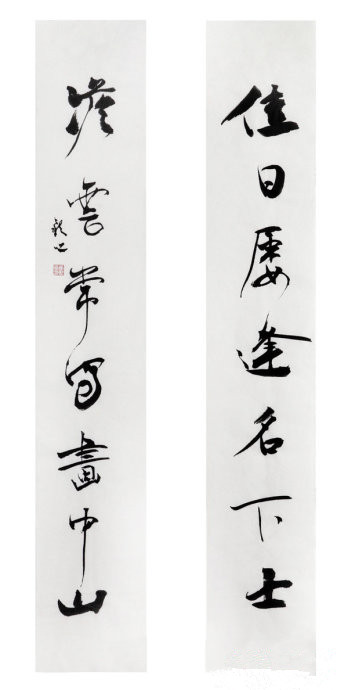 佳日屢逢名下士
淡雲常寫畫中山